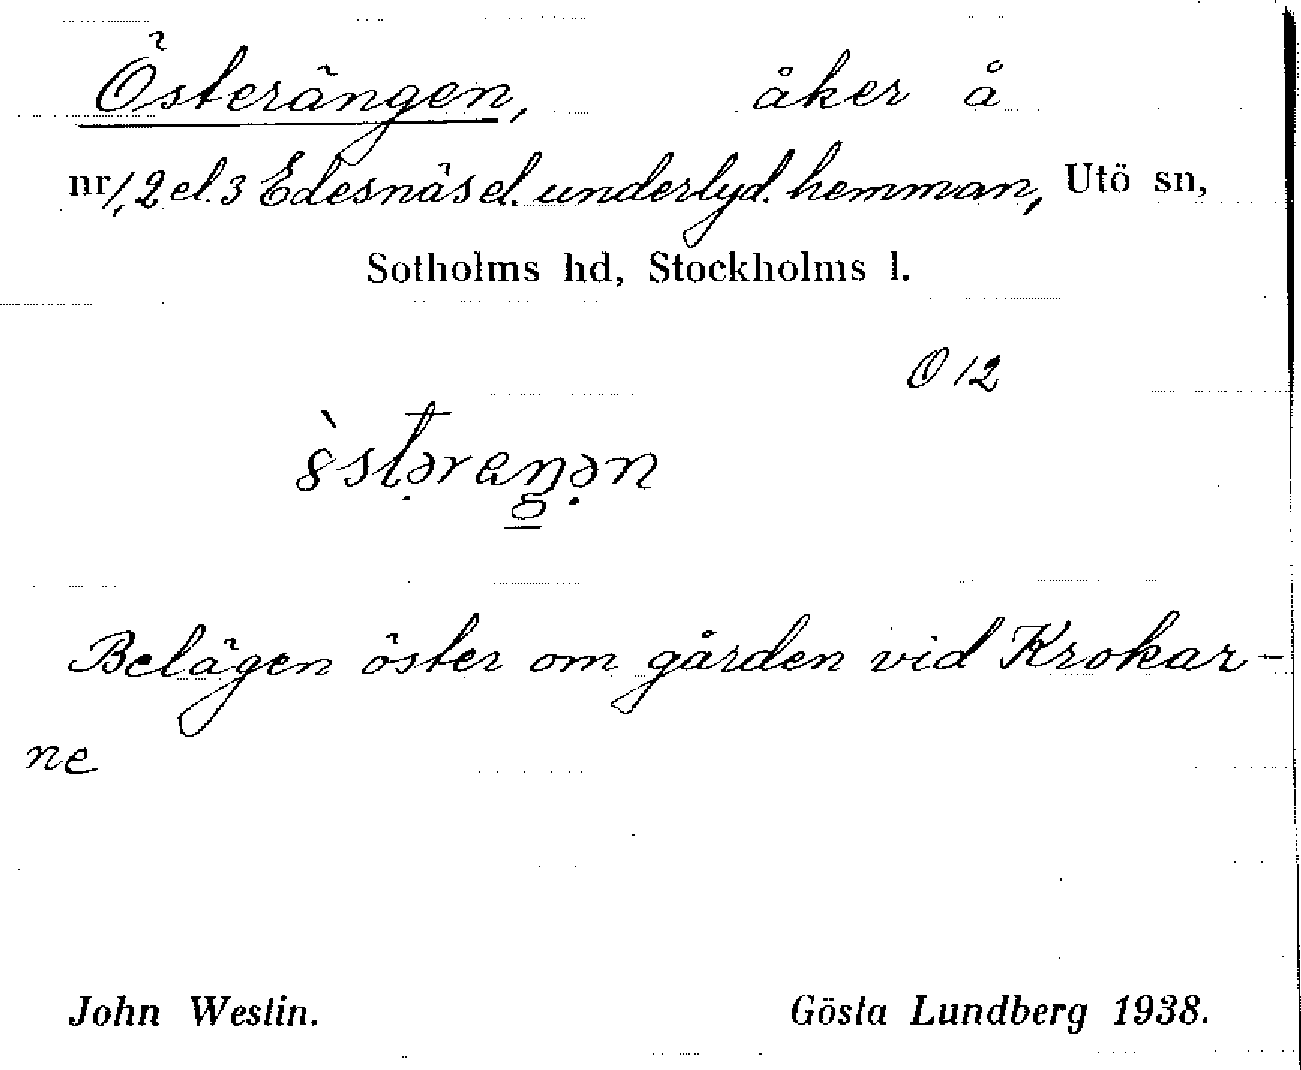 Österängen, åker å
nr 1, 2 el. 3 Edesnäs el. underlyd. hemman, Utö sn,
Sotholms hd, Stockholms l.
O 12
Belägen öster om gården vid Krokar-
ne
John Westin. Gösta Lundberg 1938.